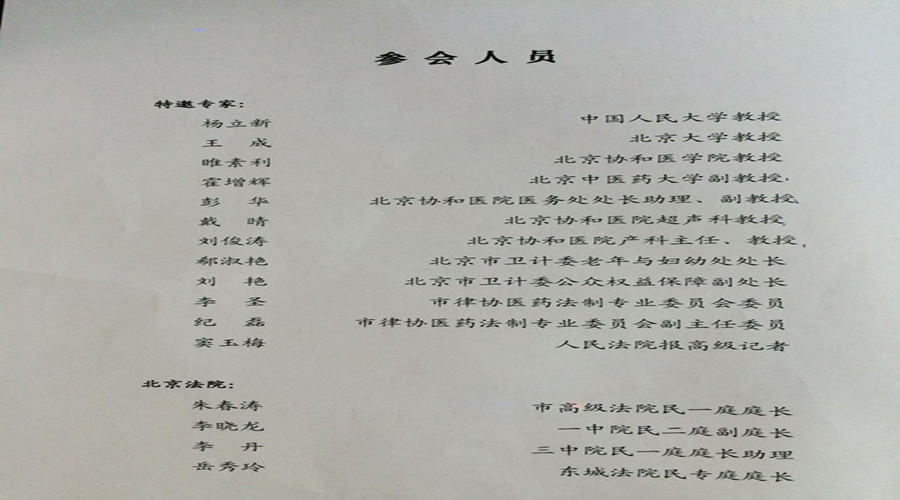 参会人员
特邀专家：
杨立新 中国人民大学教授
王 成 北京大学教授
睢素利 北京协和医学院教授
霍增辉 北京中医药大学副教授
彭 华 北京协和医院医务处处长助理、副教授
戴 晴 北京协和医院超声科教授
刘俊涛 北京协和医院产科主任、教授
郗淑艳 北京市卫计委老年与妇幼处处长
刘 艳 北京市卫计委公众权益保障副处长
李 圣 市律协医药法制专业委员会委员
纪 磊 市律协医药法制专业委员会副主任委员
窦玉梅 人民法院报高级记者
北京法院：
朱春涛 市高级法院民一庭庭长
李晓龙 一中院民二庭副庭长
李 丹 三中院民一庭庭长助理
岳秀玲 东城法院民专庭庭长